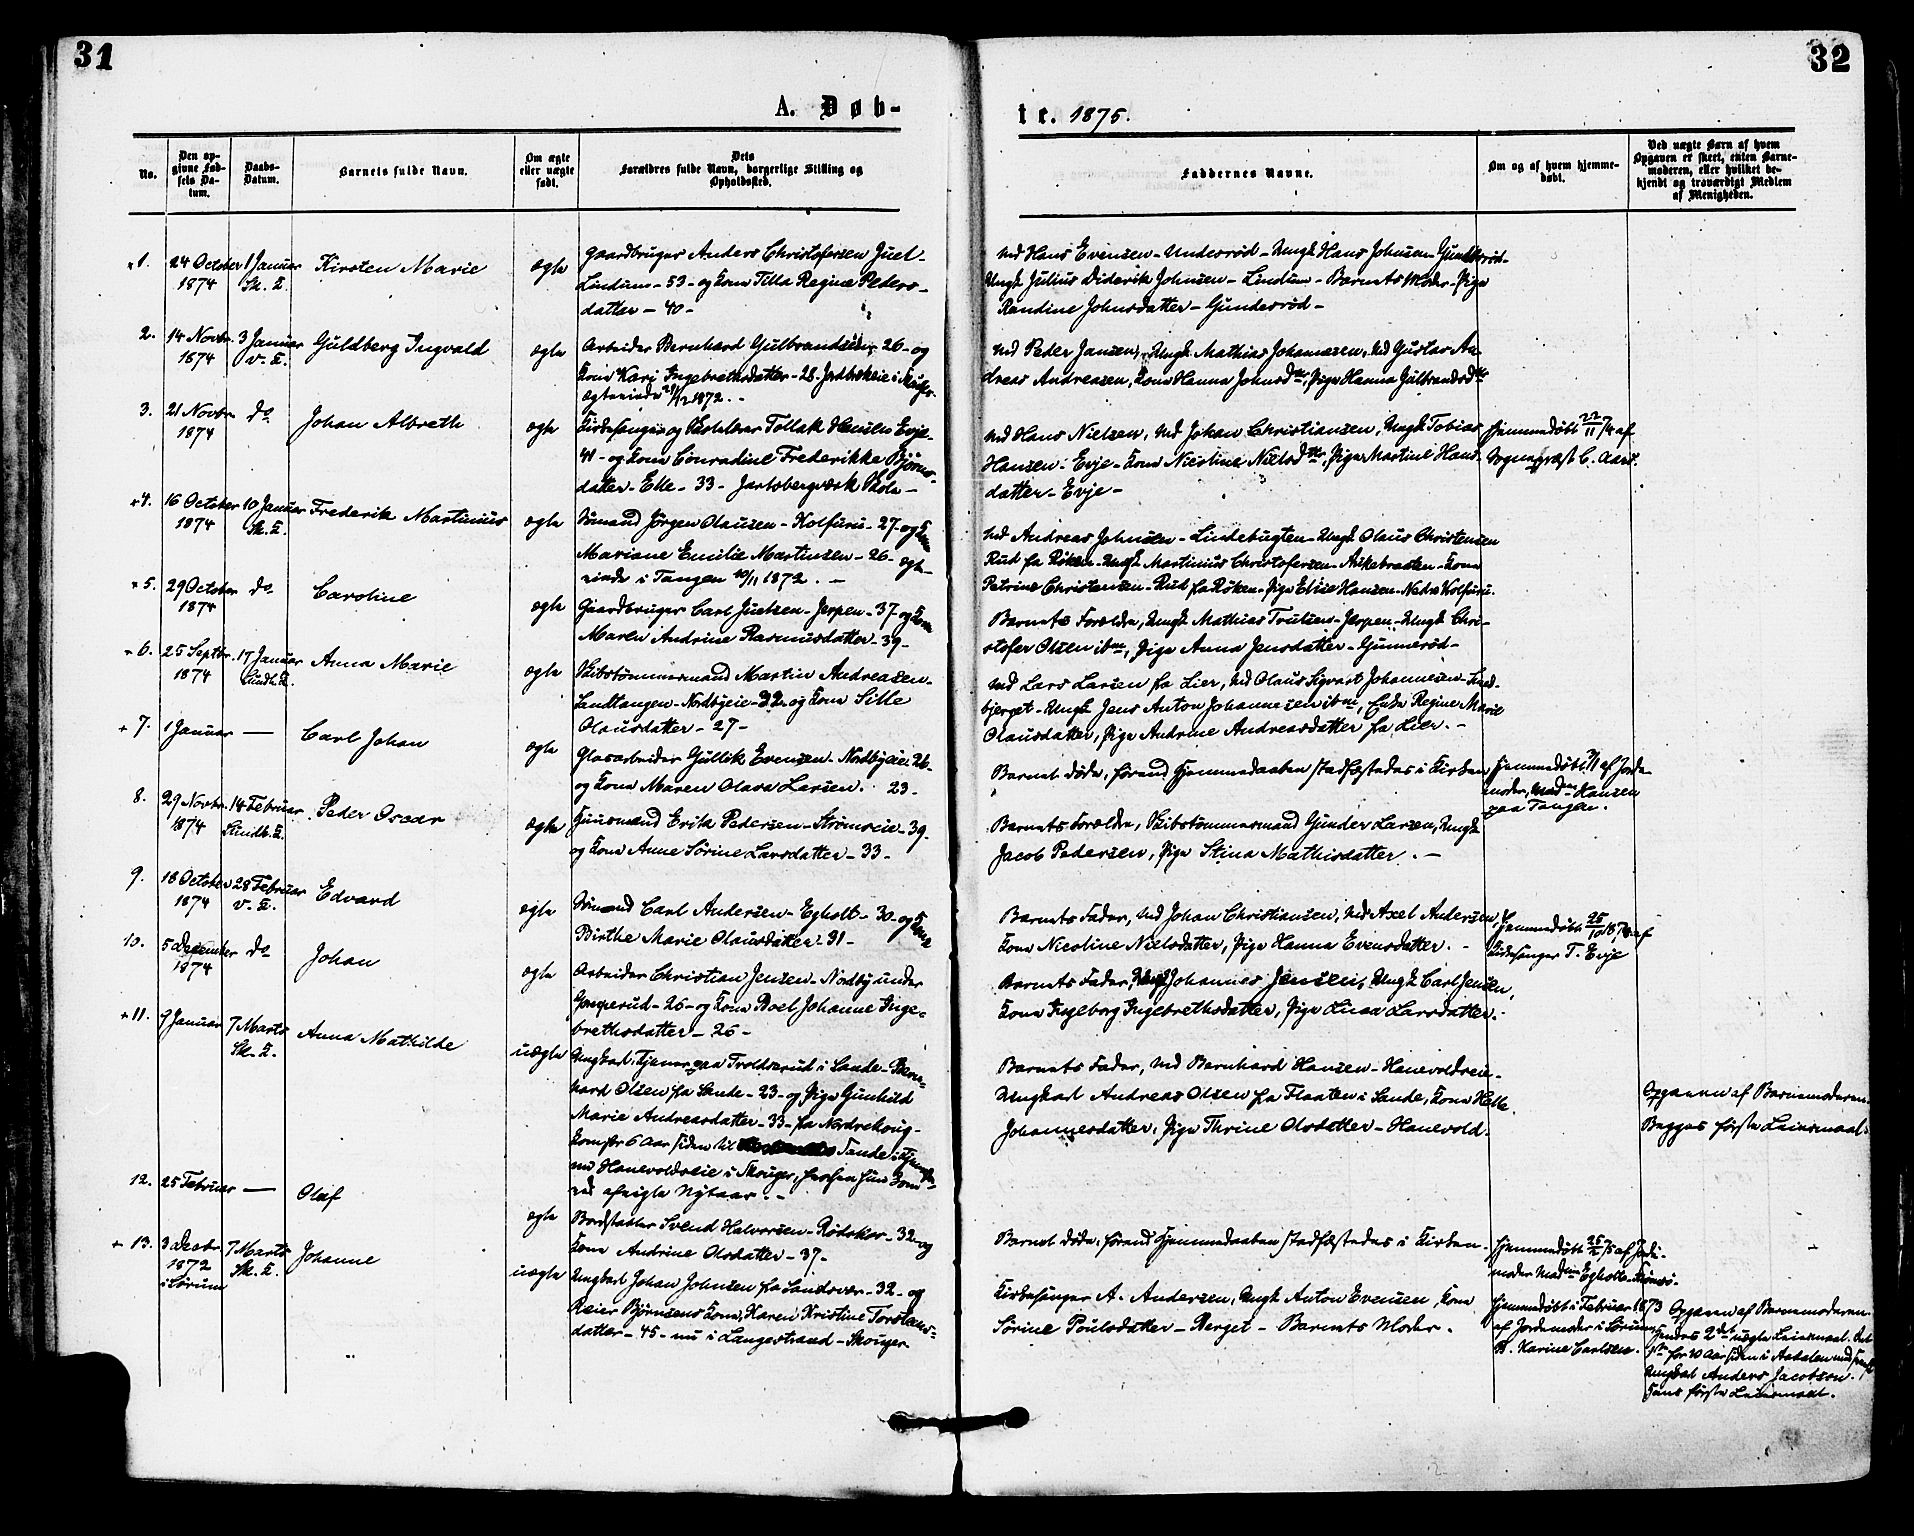 31
32
A. Døb-
te. 1875.
No.
Den op-
givne Fød-
sels Da-
tum.
Daabs-
Datum.
Barnets fulde Navn.
Om ægte
eller uægte
født.
Dets
Forældres fulde Navn, borgerlige Stilling og
Opholdssted.
Faddernes Navne.
Om og af hvem hjemme-
døbt.
Ved uægte Barn af hvem
Opgaven er skeet, enten Barne-
moderen, eller hvilket be-
kjendt og troværdigt Medlem
af Menigheden.
1.
24 October
1874
1 Januar
Sk. K.
Kirsten Marie
ægte
Gaardbruger Anders Christofersen Juel-
Lindum - 53 - og Kone Tilla Regine Peders-
datter - 40 -
Ved Hans Evensen - Underrød - Ungk Hans Johnsen Gunderrød -
Ungk Julius Diderik Johnsen - Lindum - Barnets Moder - Pige
Randine Johnsdatter - Gunderrød -
2.
14 Novbr.
1874
3 Januar
v. K.
Guldberg Ingvald
ægte
Arbeider Bernhard Gulbrandsen - 26 - og
Kone Kari Ingebrethsdatter - 28.
1872. -
Peder Jansen, Ungk Mathias Johannesen, Gustav An-
dreas Andreasen, Kone Hanna Johnsd, Pige Hanna Gulbrandsd
3.
21 Novbr.
1874
do
Johan Albreth
ægte
Kirkesanger og Skolelærer Tollak Hansen Evje -
41 - og Kone Conradine Frederikke Bjørns-
datter - Elle - 33 - Jarlsbergværk Skole -
Hans Nielsen, Johan Christiansen, Ungk Tobias
Hansen - Evje - Kone Nicoline Nielsd, Pige Martine Hans-
datter - Evje -
Hjemmedøbt 22/11 74 af
Sogneprest C. Aars.
4.
16 October
1874
10 Januar
Sk. K.
Frederik Martinius
ægte
Sømand Jørgen Olausen - Kolfuru - 27 - og Kone
Mariane Emilie Martinsen - 26 -
i Tangen 10/11 1872. -
Andreas Johnsen - Lindebugten - Ungk Olaus Christensen
Rud fra Røken - Ungk Martinius Christofersen - Askebraaten - Kone
Petrine Christensen - Rud fra Røken - Pige Elise Hansen - Nedre Kolfuru.
5.
29 October
1874
do
Caroline
ægte
Gaardbruger Carl Juelsen - Jerpen - 37 - og Kone
Maren Andrine Rasmusdatter - 39 -
Barnets Forældre, Ungk Mathias Trulsen - Jerpen - Ungk Chri-
stofer Olsen, Pige Anna Jensdatter - Gunnerød -
6.
25 Septbr.
1874
17 Januar
Anna Marie
ægte
Skibstømmermand Martin Andreasen -
Sandtangen - Nordbyeie - 32 - og Kone Sille
Olausdatter - 27 -
Lars Larsen fra Lier, Olaus Sigvart Johannesen -
bjerget - Ungk Jens Anton Johannesen, Enke Regine Marie
Olausdatter, Pige Andrine Andreasdatter fra Lier. -
7.
1 Januar
—
Carl Johan
ægte
Glasarbeider Gullik Evensen - Nordbyeie - 26 -
og Kone Maren Olava Larsen. 23 -
Barnet døde, førend Hjemmedaaben stadfæstedes i Kirken
Hjemmedøbt af Jorde-
moder, Hansen
paa Tangen.
8.
29 Novbr.
1874
14 Februar
Peder Oscar
ægte
Huusmand Erik Pedersen - Strømseie - 39 -
og Kone Anne Sørine Larsdatter - 33 -
Barnets Forældre, Skibstømmermand Gunder Larsen, Ungk
Jacob Pedersen, Pige Stina Mathisdatter. -
9.
18 October
1874
28 Februar
v. K.
Edvard
ægte
Sømand Carl Andersen - Egholt - 30 - og Kone
Birthe Marie Olausdatter - 31 -
Barnets Fader, Johan Christiansen, Axel Andersen,
Kone Nicoline Nielsdatter, Pige Hanna Evensdatter. -
Hjemmedøbt 25/10 1874 af
Kirkesanger T. Evje
10.
5 December
1874
do
Johan
ægte
Arbeider Christian Jensen - Nordby under
- 26 - og Kone Boel Johanne Inge-
brethsdatter - 26 -
Barnets Fader, Ungk Johannes Jensen, Ungk Carl Jensen,
Kone Ingeborg Ingebrethsdatter, Pige Lina Larsdatter. -
11.
9 Januar
7 Marts
Sk. K.
Anna Mathilde
uægte
Ungkarl, Tjener paa Troldsrud i Sande - Bern-
hard Olsen fra Sande - 23 - og Pige Gunhild
Marie Andreasdatter - 33 - fra Nordrehoug -
Komfor 6 Aar siden til Sande i
nu Hanevoldseie i Skouger, hun kom
Nytaar. -
Barnets Fader, Bernhard Hansen - Hanevoldseie -
Ungkarl Andreas Olsen fra Flaaten i Sande, Kone Helle
Johannesdatter, Pige Thrine Olsdatter - Hanevold -
Opgaven af Barnemoderen.
Begges første Leiermaal.
12.
25 Februar
—
Olaf
ægte
Bordstabler Svend Halvorsen - Rødskor - 32 - og
Kone Andrine Olsdatter - 37 -
Barnet døde, førend Hjemmedaaben stadfæstedes i Kirken -
Hjemmedøbt 25/2 75 af Jorde-
moder Egholt -
13.
3 Decbr.
1872
i Sørum
7 Marts
Sk. K.
Johanne
uægte
Ungkarl Johan Johnsen fra Sandsvær - 32 - og
Reier Bjørnsens Kone, Karen Kristine Torstens-
datter - 45 - nu i Langestrand - Skouger.
Kirkesanger A. Andersen, Ungk Anton Evensen, Kone
Sørine Poulsdatter - Berget - Barnets Moder.
Hjemmedøbt i Februar 1873
af Jordemoder i Sørum
Karine Carlsen.
Opgaven af Barnemoderen.
Hendes 2det uægte Leiermaal. Det
1ste for 10 Aar siden i Aadalen med
Ungkarl Anders Jacobsen.
Hans første Leiermaal.